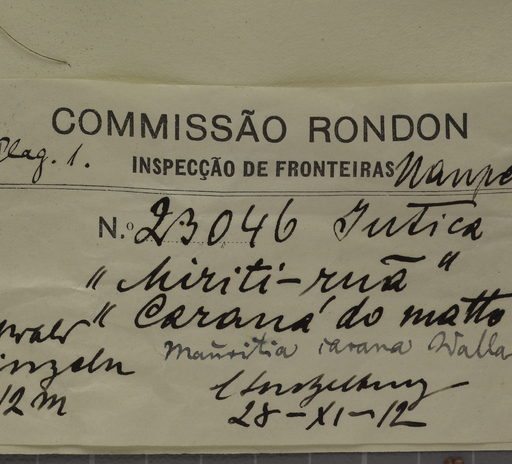 COMMISSÃO RONDON
Plag. 1. INSPECÇÃO DE FRONTEIRAS Uaupe
N.o 23046 Jutica
"Miriti-ruã"
"Caraná do matto
wald
inzeln Mauritia carana Walla
12 m
28-XI-12